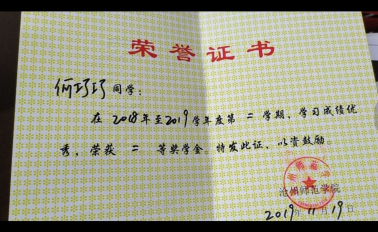 荣誉证书
何巧巧同学：
在2018年至2019学年度第二学期，学习成绩优
秀，荣获二等奖学金。特发此证，以资鼓励。
沧州师范学院
2019年11月19日